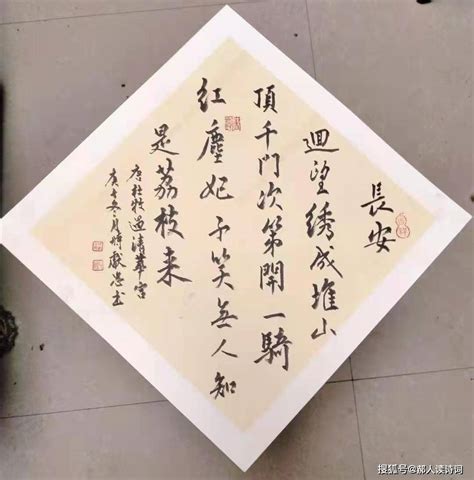 長安
迴望绣成堆山
頂千門次第開一騎
红塵妃子笑無人知
是荔枝来
唐杜牧過清華宫
庚子冬月
搜狐号@郝人读诗词